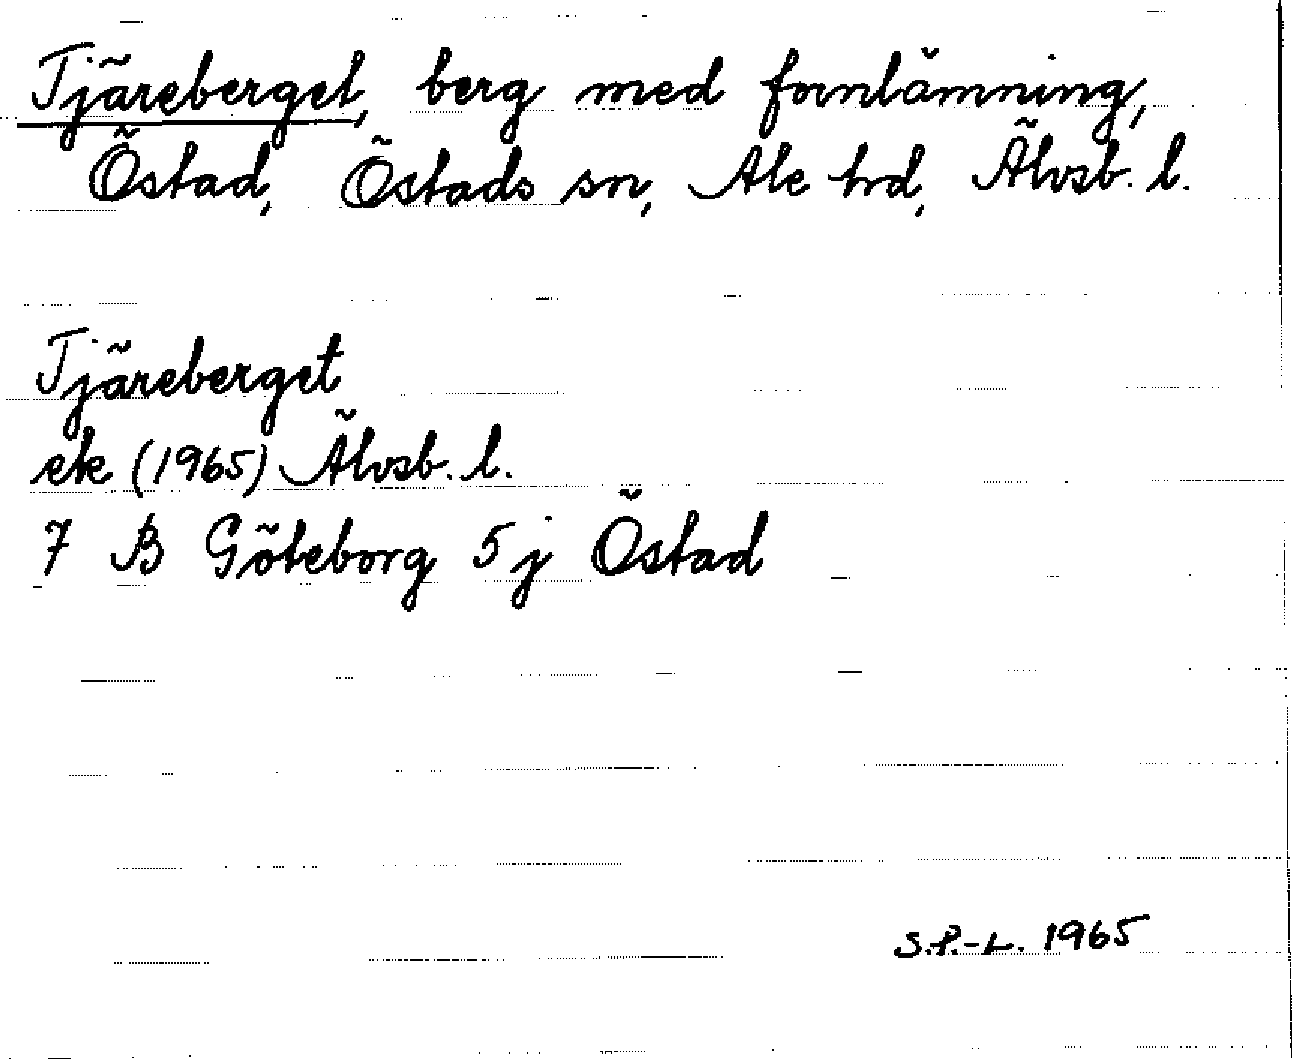 Tjäreberget, berg med fornlämning,
Östad, Östads sn, Ale hd, Älvsb. l.
Tjäreberget
ek (1965) Älvsb. l.
7 B Göteborg 5 j Östad
S.P.-L. 1965